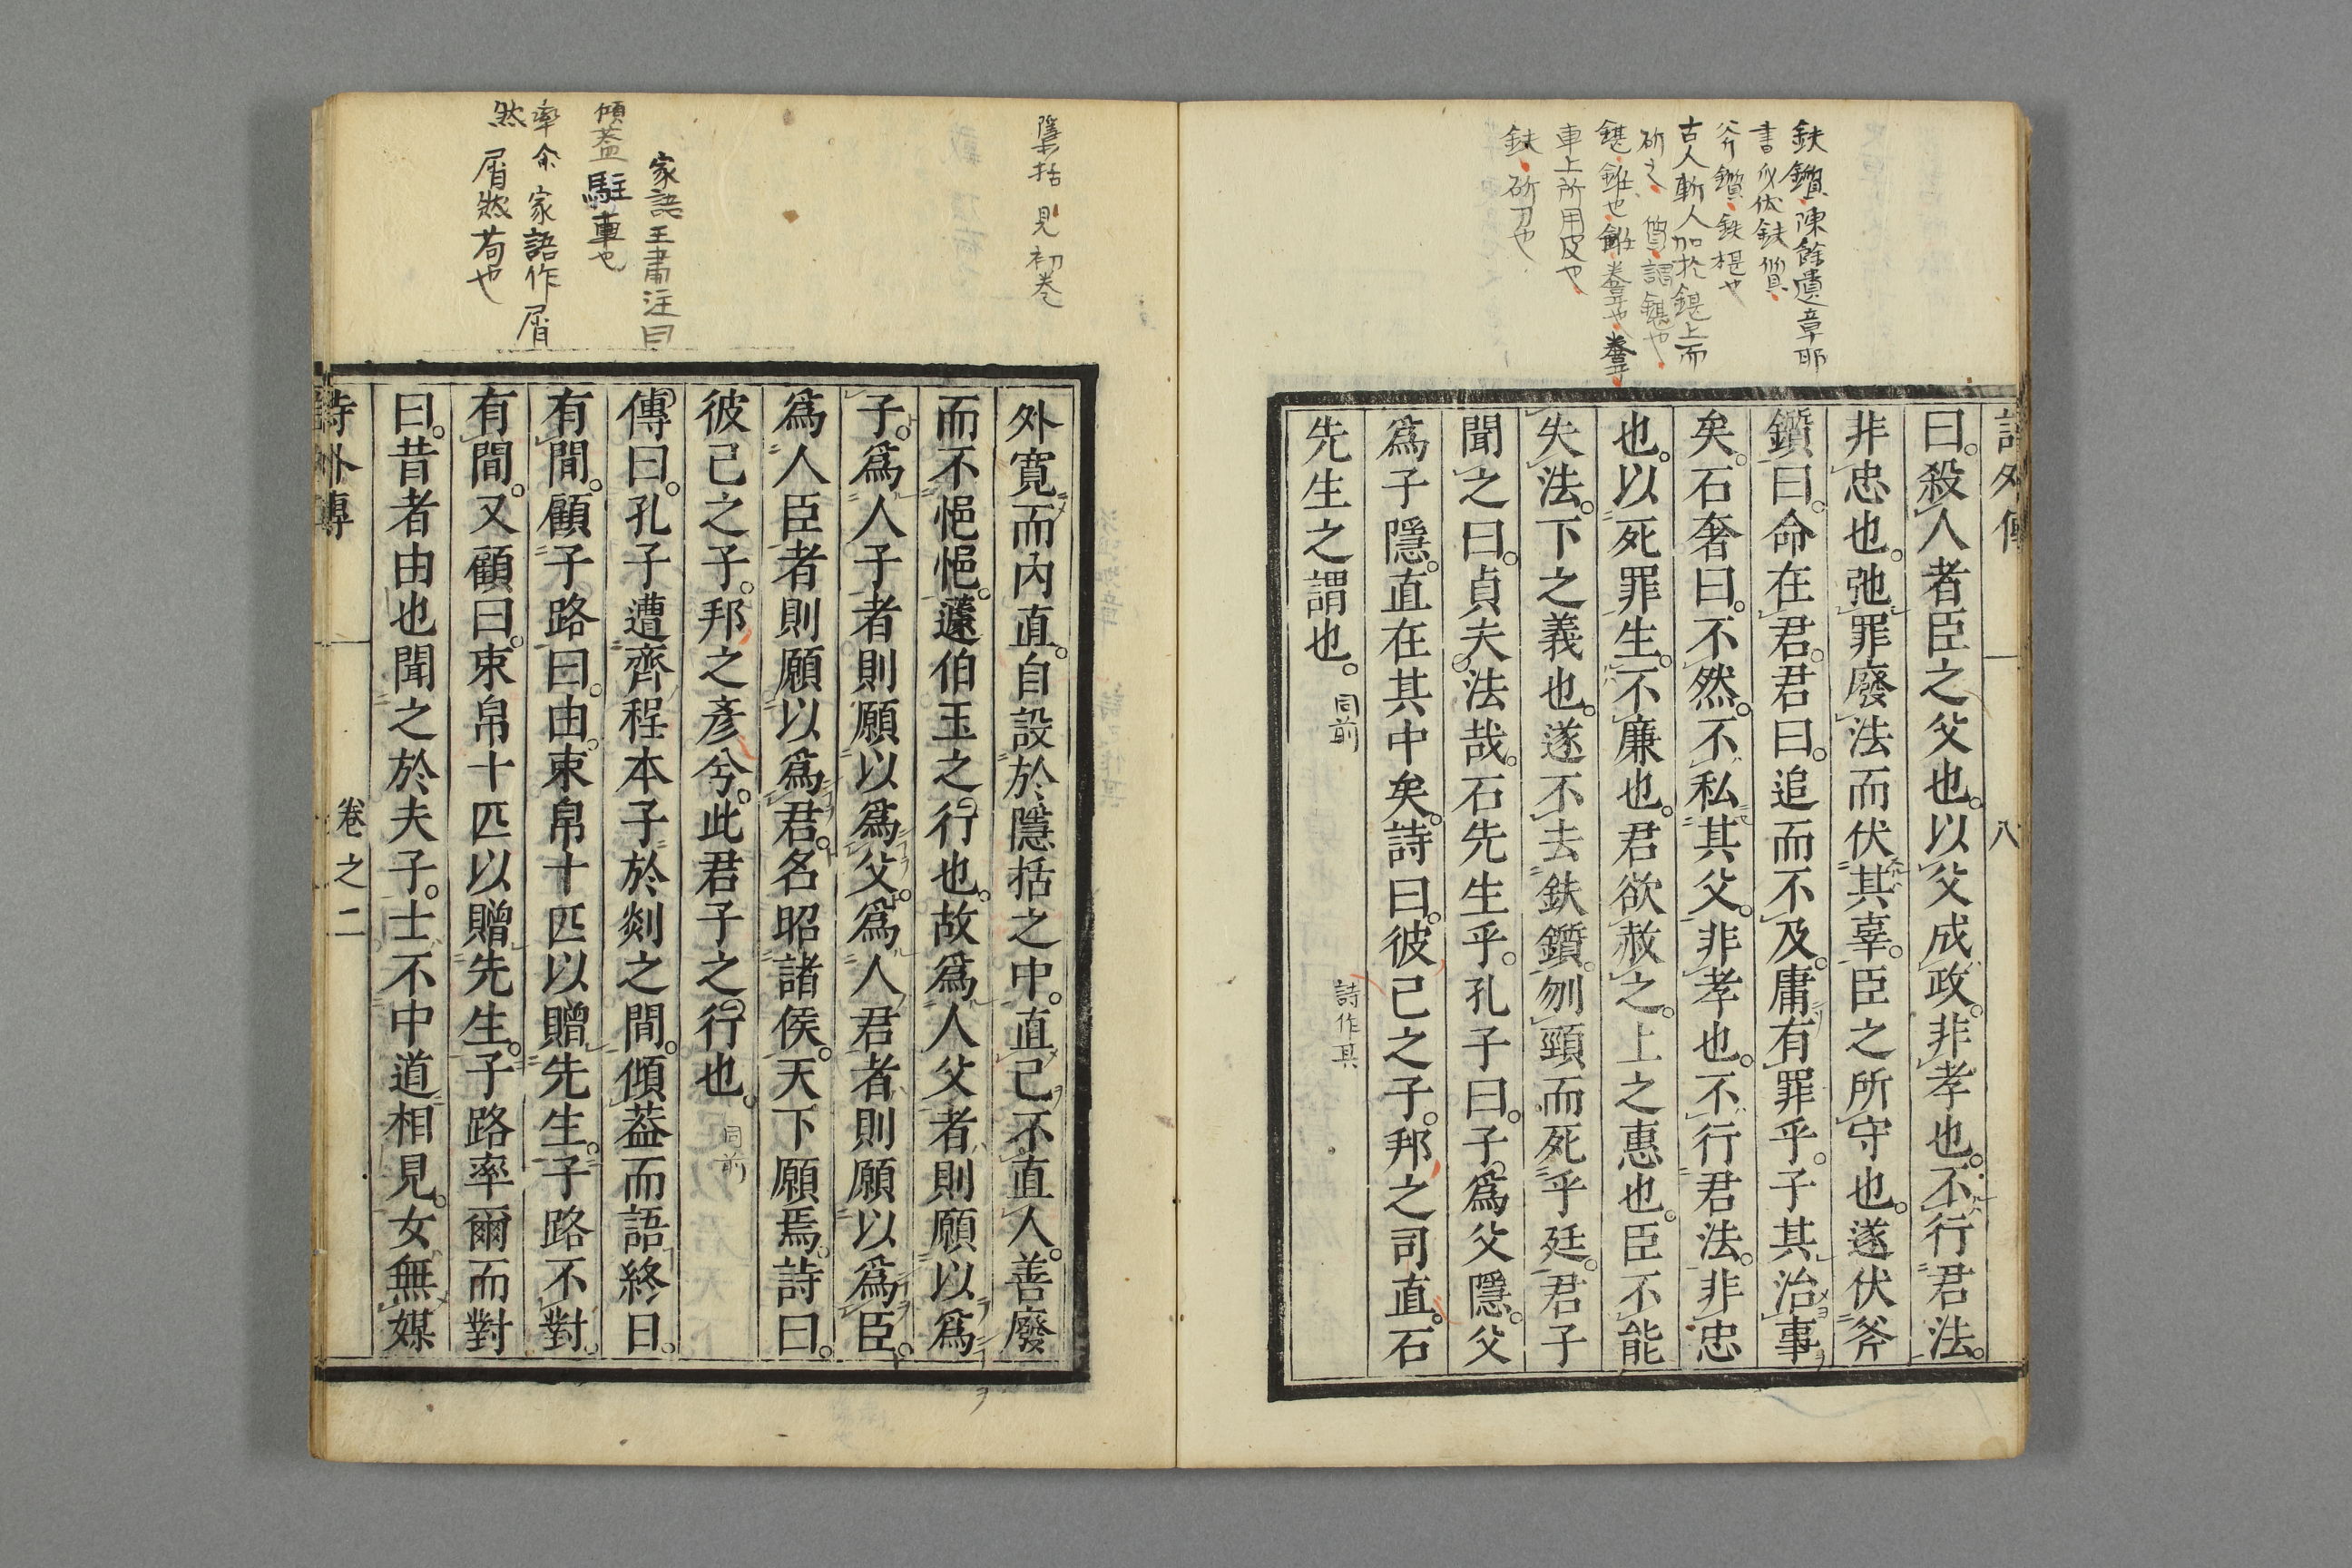 鈇鑕陳餘遺章邯
書必伏鈇質
斧鑕鈇椹也
古人斬人加於鍖上而
斫之質謂鍖也
車上所用皮也
鈇斫刀也
詩外傳 八
曰。殺人者臣之父也。以父成政。非孝也。不行君法。
非忠也。弛罪廢法而伏其辜。臣之所守也。遂伏斧
鑕曰。命在君。君曰。追而不及。庸有罪乎。子其治事
矣。石奢曰。不然。不私其父。非孝也。不行君法。非忠
也。以死罪生。不廉也。君欲赦之。上之惠也。臣不能
失法。下之義也。遂不去鈇鑕。刎頸而死乎廷。君子
聞之曰。貞夫法哉。石先生乎。孔子曰。子爲父隱。父
爲子隱。直在其中矣。詩曰。彼己之子。邦之司直。石
先生之謂也。同前
詩作其
隱括見初卷
家語王肅注曰
傾蓋駐車也
率尒家語作屑
然屑然苟也
外寬而內直。自設於隱括之中。直己不直人。善廢
而不悒悒。蘧伯玉之行也。故爲人父者則願以爲
子。爲人子者則願以爲父。爲人君者則願以爲臣。
爲人臣者則願以爲君。名昭諸侯。天下願焉。詩曰。
彼己之子。邦之彥兮。此君子之行也。同前
傳曰。孔子遭齊程本子於剡之間。傾蓋而語終日。
有間。顧子路曰。由。束帛十匹以贈先生。子路不對。
有間。又顧曰。束帛十匹以贈先生。子路率爾而對
曰。昔者由也聞之於夫子。士不中道相見。女無媒
詩外傳 卷之二